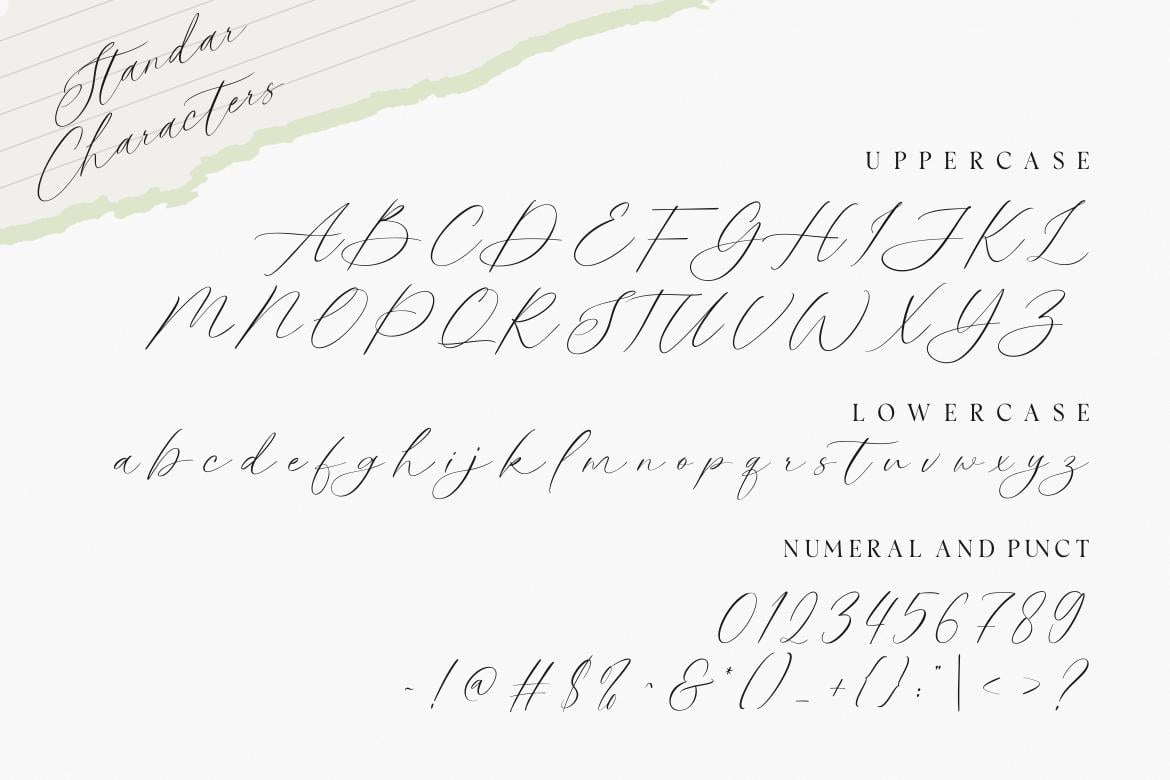 Standar
Characters
UPPERCASE
ABCDEFGHIJKL
MNOPQRSTUVWXYZ
LOWERCASE
abcdefghijklmnopqrstuvwxyz
NUMERAL AND PUNCT
0123456789
~!@#$%^&*()_+{}:"|<>?